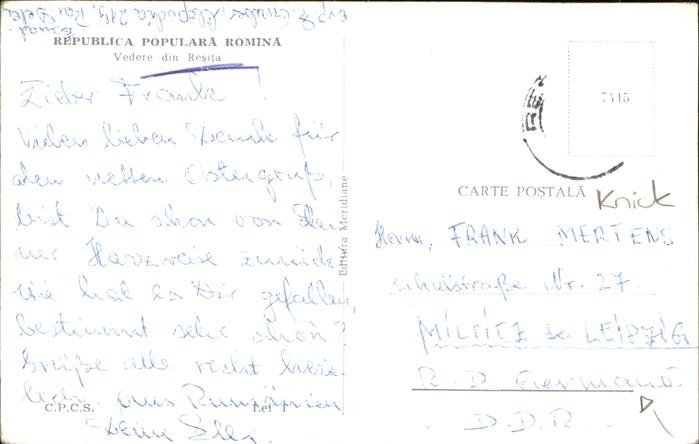 REPUBLICA POPULARĂ ROMÎNĂ
Vedere din Reșița
Lieber Frank!
Vielen lieben Dank für
den netten Ostergruß,
bist Du schon von
Harzreise zurück
wie hat es Dir gefallen
bestimmt sehr schön?
Grüße alle recht herz-
lich, aus Rumänien
C.P.C.S. Lei 1
Editura Meridiane
7415
CARTE POSTALĂ
Knick
Herrn, FRANK MERTENS
Schulstraße Nr. 27.
MILTITZ bei LEIPZIG
R. D. Germană
D. D. R.